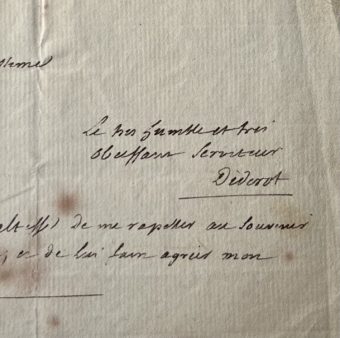 Le tres humble et tres
obeissant serviteur
Diderot
de me rapeller au souvenir
, et de lui faire agréer mon